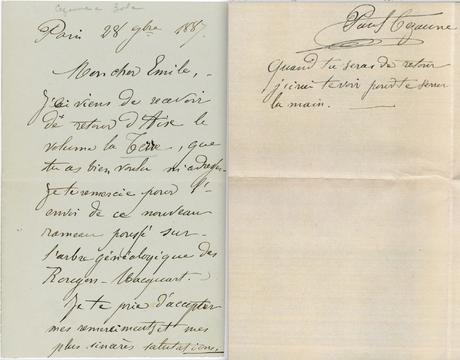 Cezanne a Zola
Paris 28 9bre 1887.
Mon cher Emile, -
Je viens de recevoir
de retour d'Aix le
volume la Terre, que
tu as bien voulu m'adresser.
Je te remercie pour l'
envoi de ce nouveau
rameau poussé sur
l'arbre généalogique des
Rougon-Macquart.
Je te prie d'accepter
mes remerciments et mes
plus sincères salutations.
Paul Cezanne
Quand tu seras de retour
j'irai te voir pour te serrer
la main.